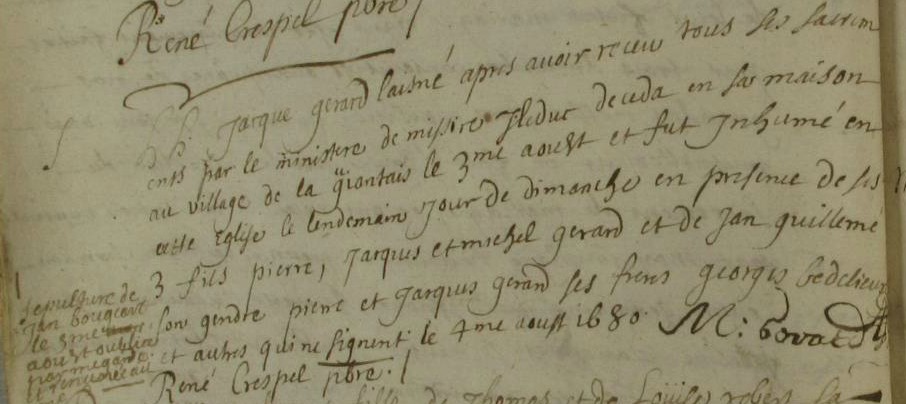 René Crespel pbre
Jacque gerard laisné apres avoir receu tous ses sacrem
ents par le ministere de messire leduc deceda en sa maison
au village de la le 3me aoust et fut Inhumé en
cette Eglise le lendemain Jour de dimanche en presence de ses
3 fils pierre, Jacques et michel gerard et de Jan guillemé
son gendre pierre et Jacques gerard ses freres georges bedelieux
et autres qui ne signent le 4me aoust 1680. M:
René Crespel pbre.
sepulture de
Jan
le 3me
aoust oubliée
par megarde
fille de Thomas et de Louise robert